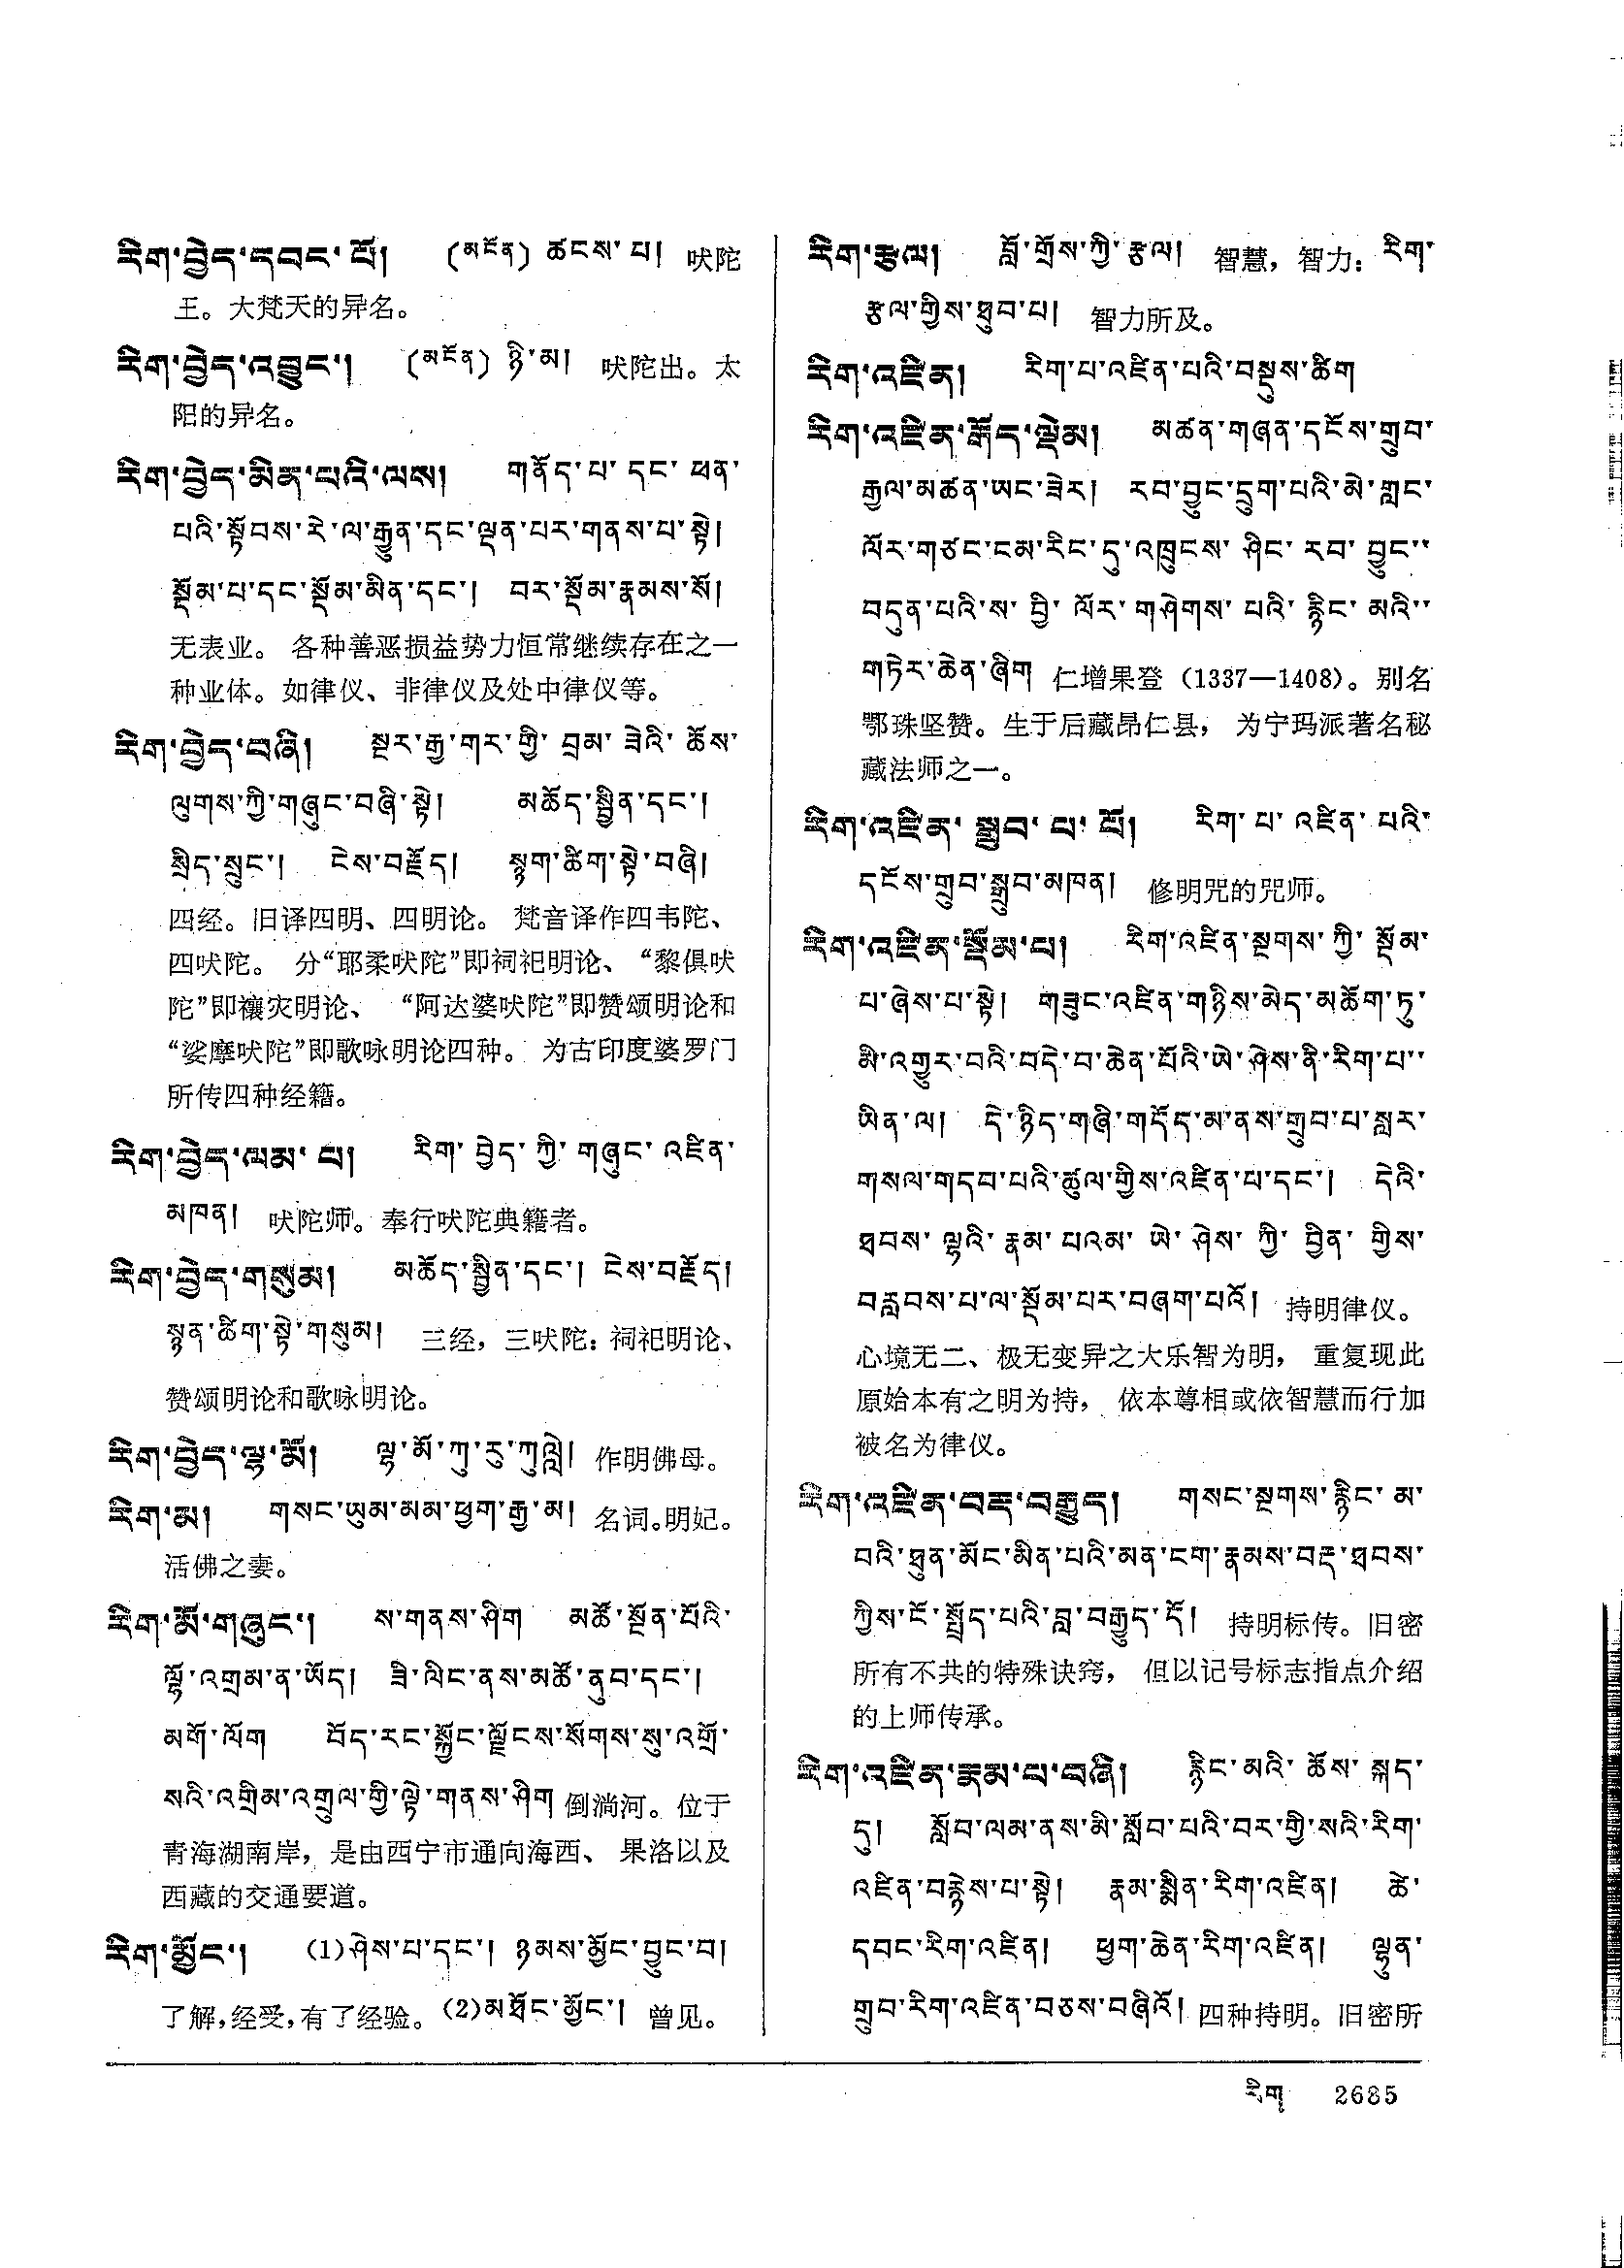 རིག་བྱེད་དབང་པོ། (མངོན) ཚངས་པ། 吠陀
王。大梵天的异名。
རིག་བྱེད་འབྱུང་། (མངོན) ཉི་མ། 吠陀出。太
阳的异名。
རིག་བྱེད་མིན་པའི་ལས། གནོད་པ་དང་ཕན་
པའི་སྟོབས་རེ་ལ་རྒྱུན་དང་ལྡན་པར་གནས་པ་སྟེ།
སྡོམ་པ་དང་སྡོམ་མིན་དང་། བར་སྡོམ་རྣམས་སོ།
无表业。各种善恶损益势力恒常继续存在之一
种业体。如律仪、非律仪及处中律仪等。
རིག་བྱེད་བཞི། སྔར་རྒྱ་གར་གྱི་བྲམ་ཟེའི་ཆོས་
ལུགས་ཀྱི་གཞུང་བཞི་སྟེ། མཆོད་སྦྱིན་དང་།
སྲིད་སྲུང་། ངེས་བརྗོད། སྙག་ཚིག་སྟེ་བཞི།
四经。旧译四明、四明论。梵音译作四韦陀、
四吠陀。分“耶柔吠陀”即祠祀明论、“黎俱吠
陀”即禳灾明论、“阿达婆吠陀”即赞颂明论和
“娑摩吠陀”即歌咏明论四种。为古印度婆罗门
所传四种经籍。
རིག་བྱེད་ལམ་པ། རིག་བྱེད་ཀྱི་གཞུང་འཛིན་
མཁན། 吠陀师。奉行吠陀典籍者。
རིག་བྱེད་གསུམ། མཆོད་སྦྱིན་དང་། ངེས་བརྗོད།
སྙན་ཚིག་སྟེ་གསུམ། 三经，三吠陀：祠祀明论、
赞颂明论和歌咏明论。
རིག་བྱེད་ལྷ་མོ། ལྷ་མོ་ཀུ་རུ་ཀུལླེ། 作明佛母。
རིག་མ། གསང་ཡུམ་མམ་ཕྱག་རྒྱ་མ། 名词。明妃。
活佛之妻。
རིག་མོ་གཞུང་། ས་གནས་ཤིག མཚོ་སྔོན་པོའི་
ལྷོ་འགྲམ་ན་ཡོད། ཟི་ལིང་ནས་མཚོ་ནུབ་དང་།
མགོ་ལོག བོད་རང་སྐྱོང་ལྗོངས་སོགས་སུ་འགྲོ་
སའི་འགྲིམ་འགྲུལ་གྱི་ལྟེ་གནས་ཤིག 倒淌河。位于
青海湖南岸，是由西宁市通向海西、果洛以及
西藏的交通要道。
རིག་མྱོང་། (1)ཤེས་པ་དང་། ཉམས་མྱོང་བྱུང་བ།
了解，经受，有了经验。(2)མཐོང་མྱོང་། 曾见。
རིག་རྩལ། བློ་གྲོས་ཀྱི་རྩལ། 智慧，智力：རིག་
རྩལ་གྱིས་ཐུབ་པ། 智力所及。
རིག་འཛིན། རིག་པ་འཛིན་པའི་བསྡུས་ཚིག
རིག་འཛིན་རྒོད་ལྡེམ། མཚན་གཞན་དངོས་གྲུབ་
རྒྱལ་མཚན་ཡང་ཟེར། རབ་བྱུང་དྲུག་པའི་མེ་གླང་
ལོར་གཙང་ངམ་རིང་དུ་འཁྲུངས་ཤིང་རབ་བྱུང་་
བདུན་པའི་ས་བྱི་ལོར་གཤེགས་པའི་རྙིང་མའི་་
གཏེར་ཆེན་ཞིག 仁增果登（1337—1408）。别名
鄂珠坚赞。生于后藏昂仁县，为宁玛派著名秘
藏法师之一。
རིག་འཛིན་སྒྲུབ་པ་པོ། རིག་པ་འཛིན་པའི་
དངོས་གྲུབ་སྒྲུབ་མཁན། 修明咒的咒师。
རིག་འཛིན་སྡོམ་པ། རིག་འཛིན་སྔགས་ཀྱི་སྡོམ་
པ་ཞེས་པ་སྟེ། གཟུང་འཛིན་གཉིས་མེད་མཆོག་ཏུ་
མི་འགྱུར་བའི་བདེ་བ་ཆེན་པོའི་ཡེ་ཤེས་ནི་རིག་པ་་
ཡིན་ལ། དེ་ཉིད་གཞི་གདོད་མ་ནས་གྲུབ་པ་སླར་
གསལ་གདབ་པའི་ཚུལ་གྱིས་འཛིན་པ་དང་། དེའི་
ཐབས་ལྷའི་རྣམ་པའམ་ཡེ་ཤེས་ཀྱི་བྱིན་གྱིས་
བརླབས་པ་ལ་སྡོམ་པར་བཞག་པའོ། 持明律仪。
心境无二、极无变异之大乐智为明，重复现此
原始本有之明为持，依本尊相或依智慧而行加
被名为律仪。
རིག་འཛིན་བརྡ་བརྒྱུད། གསང་སྔགས་རྙིང་མ་
བའི་ཐུན་མོང་མིན་པའི་མན་ངག་རྣམས་བརྡ་ཐབས་
ཀྱིས་ངོ་སྤྲོད་པའི་བླ་བརྒྱུད་དོ། 持明标传。旧密
所有不共的特殊诀窍，但以记号标志指点介绍
的上师传承。
རིག་འཛིན་རྣམ་པ་བཞི། རྙིང་མའི་ཆོས་སྐད་
དུ། སློབ་ལམ་ནས་མི་སློབ་པའི་བར་གྱི་སའི་རིག་
འཛིན་བརྙེས་པ་སྟེ། རྣམ་སྨིན་རིག་འཛིན། ཚེ་
དབང་རིག་འཛིན། ཕྱག་ཆེན་རིག་འཛིན། ལྷུན་
གྲུབ་རིག་འཛིན་བཅས་བཞིའོ། 四种持明。旧密所
རིག 2685